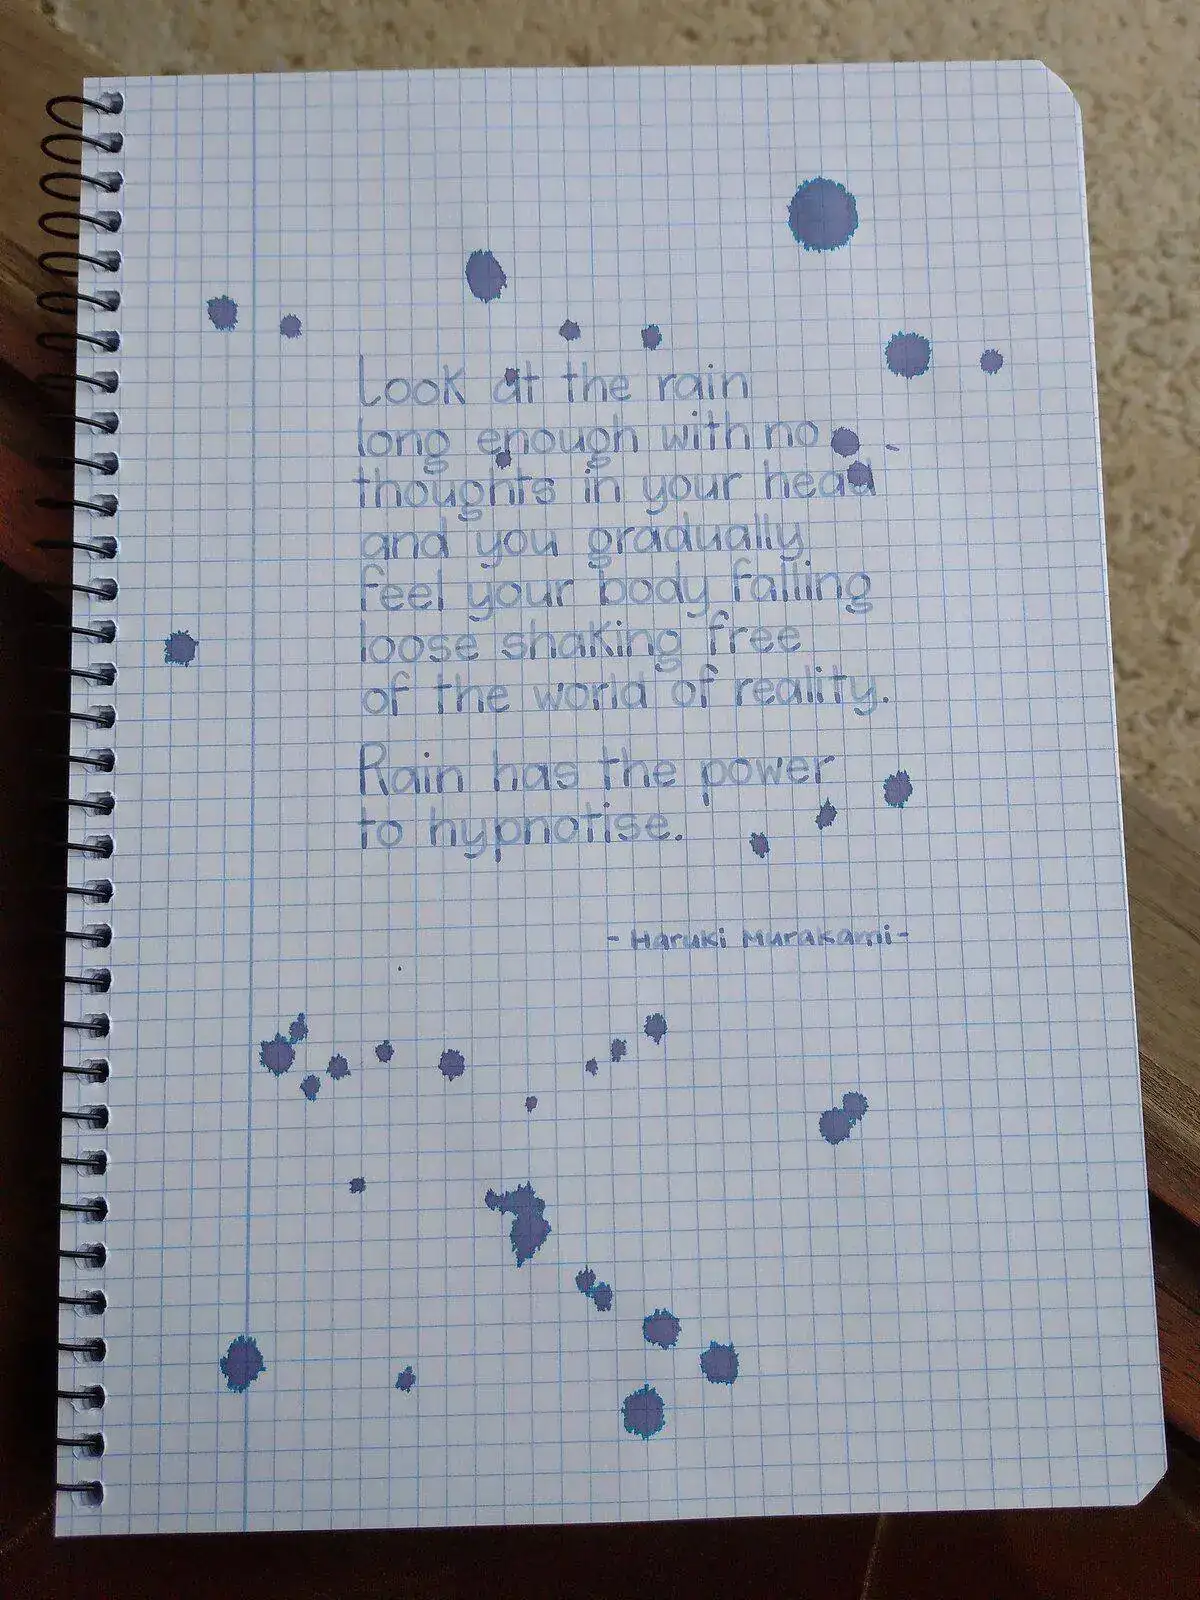 Look at the rain
long enough with no
thoughts in your head
and you gradually
feel your body falling
loose shaking free
of the world of reality.
Rain has the power
to hypnotise.
- Haruki Murakami -